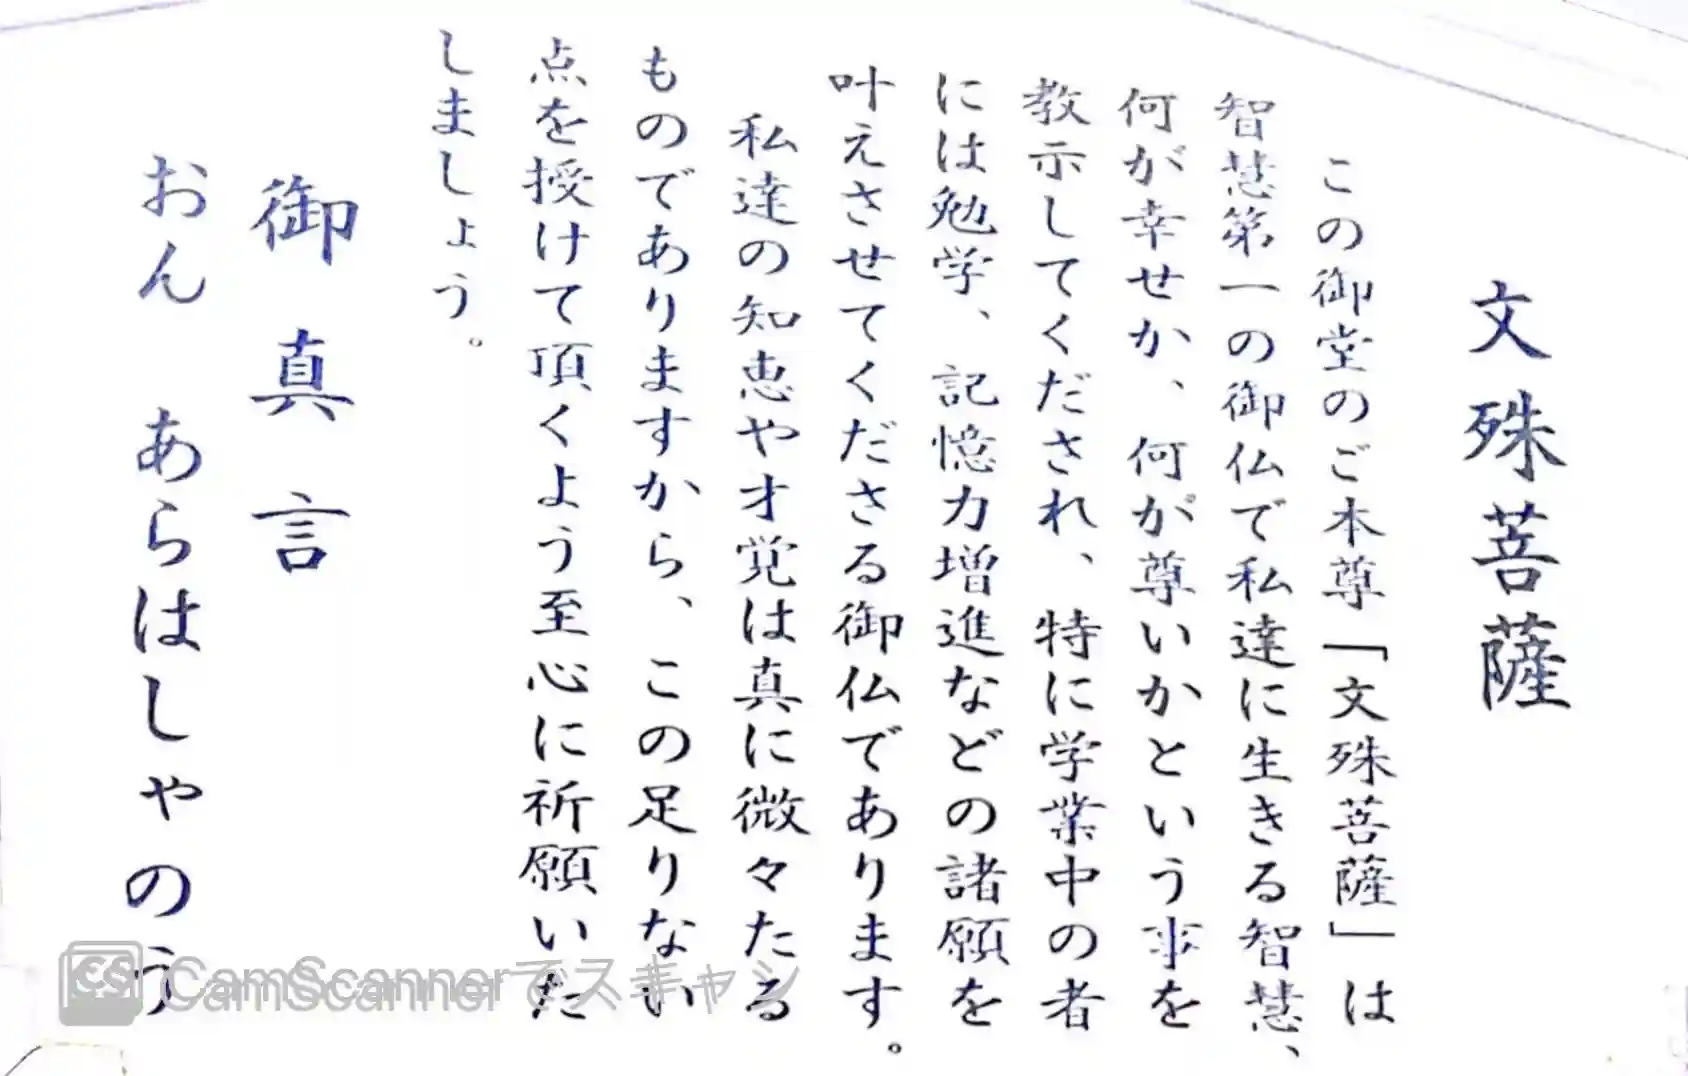 文殊菩薩
この御堂のご本尊「文殊菩薩」は
智慧第一の御仏で私達に生きる智慧、
何が幸せか、何が尊いかという事を
教示してくだされ、特に学業中の者
には勉学、記憶力増進などの諸願を
叶えさせてくださる御仏であります。
私達の知恵や才覚は真に微々たる
ものでありますから、この足りない
点を授けて頂くよう至心に祈願いた
しましょう。
御真言
おん あらはしゃのう
CS CamScannerでスキャン